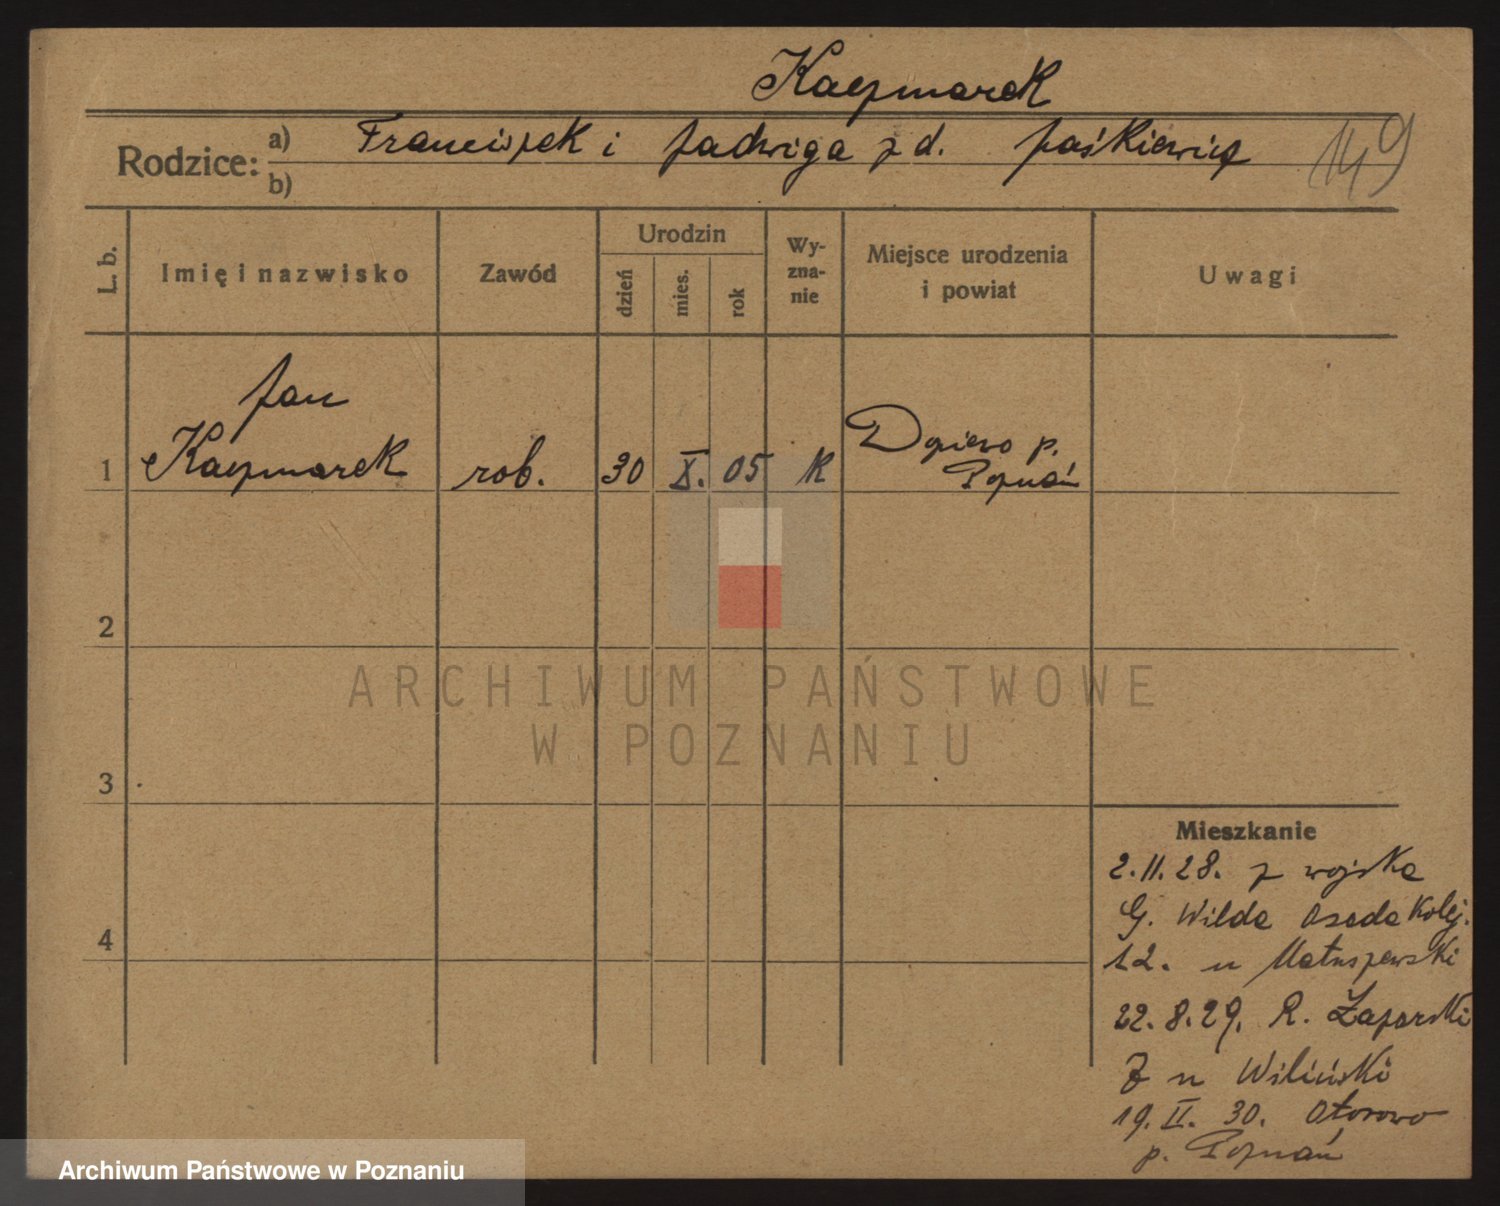 Kaczmarek
Rodzice: a) Franciszek i Jadwiga z d. Jaśkiewicz
b)
149
L. b. Imię i nazwisko Zawód Urodzin dzień mies. rok Wy-zna-nie Miejsce urodzenia i powiat Uwagi
Jan
1 Kaczmarek rob. 30 X. 05 K Dopiewo p.
Poznań
2
ARCHIWUM PAŃSTWOWE
W POZNANIU
3
4
Mieszkanie
2.11.28. z wojska
G. Wilda Osada Kolej.
12. u Matuszewski
22.8.29. R. Łazarski
7 u Wiliński
19.II.30. Otorowo
p. Poznań
Archiwum Państwowe w Poznaniu